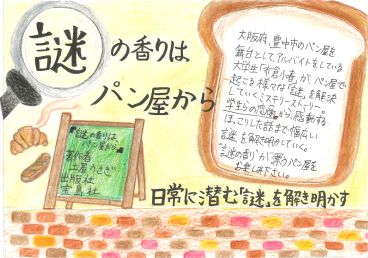 謎の香りは
パン屋から
大阪府、豊中市のパン屋を
舞台として、アルバイトをしている
大学生「市倉小春」が、パン屋で
起こる様々な「謎」を解決
していくミステリーストーリー
学生らの恋愛から、感動する
ほっこりした話まで幅広い
謎を解き明かしていく。
"謎の香り"が漂うパン屋を
お楽しみ下さい。
"謎の香りは、
パン屋から"
著作者
土屋うさぎ
出版社
宝島社
日常に潜む「謎」を解き明かす